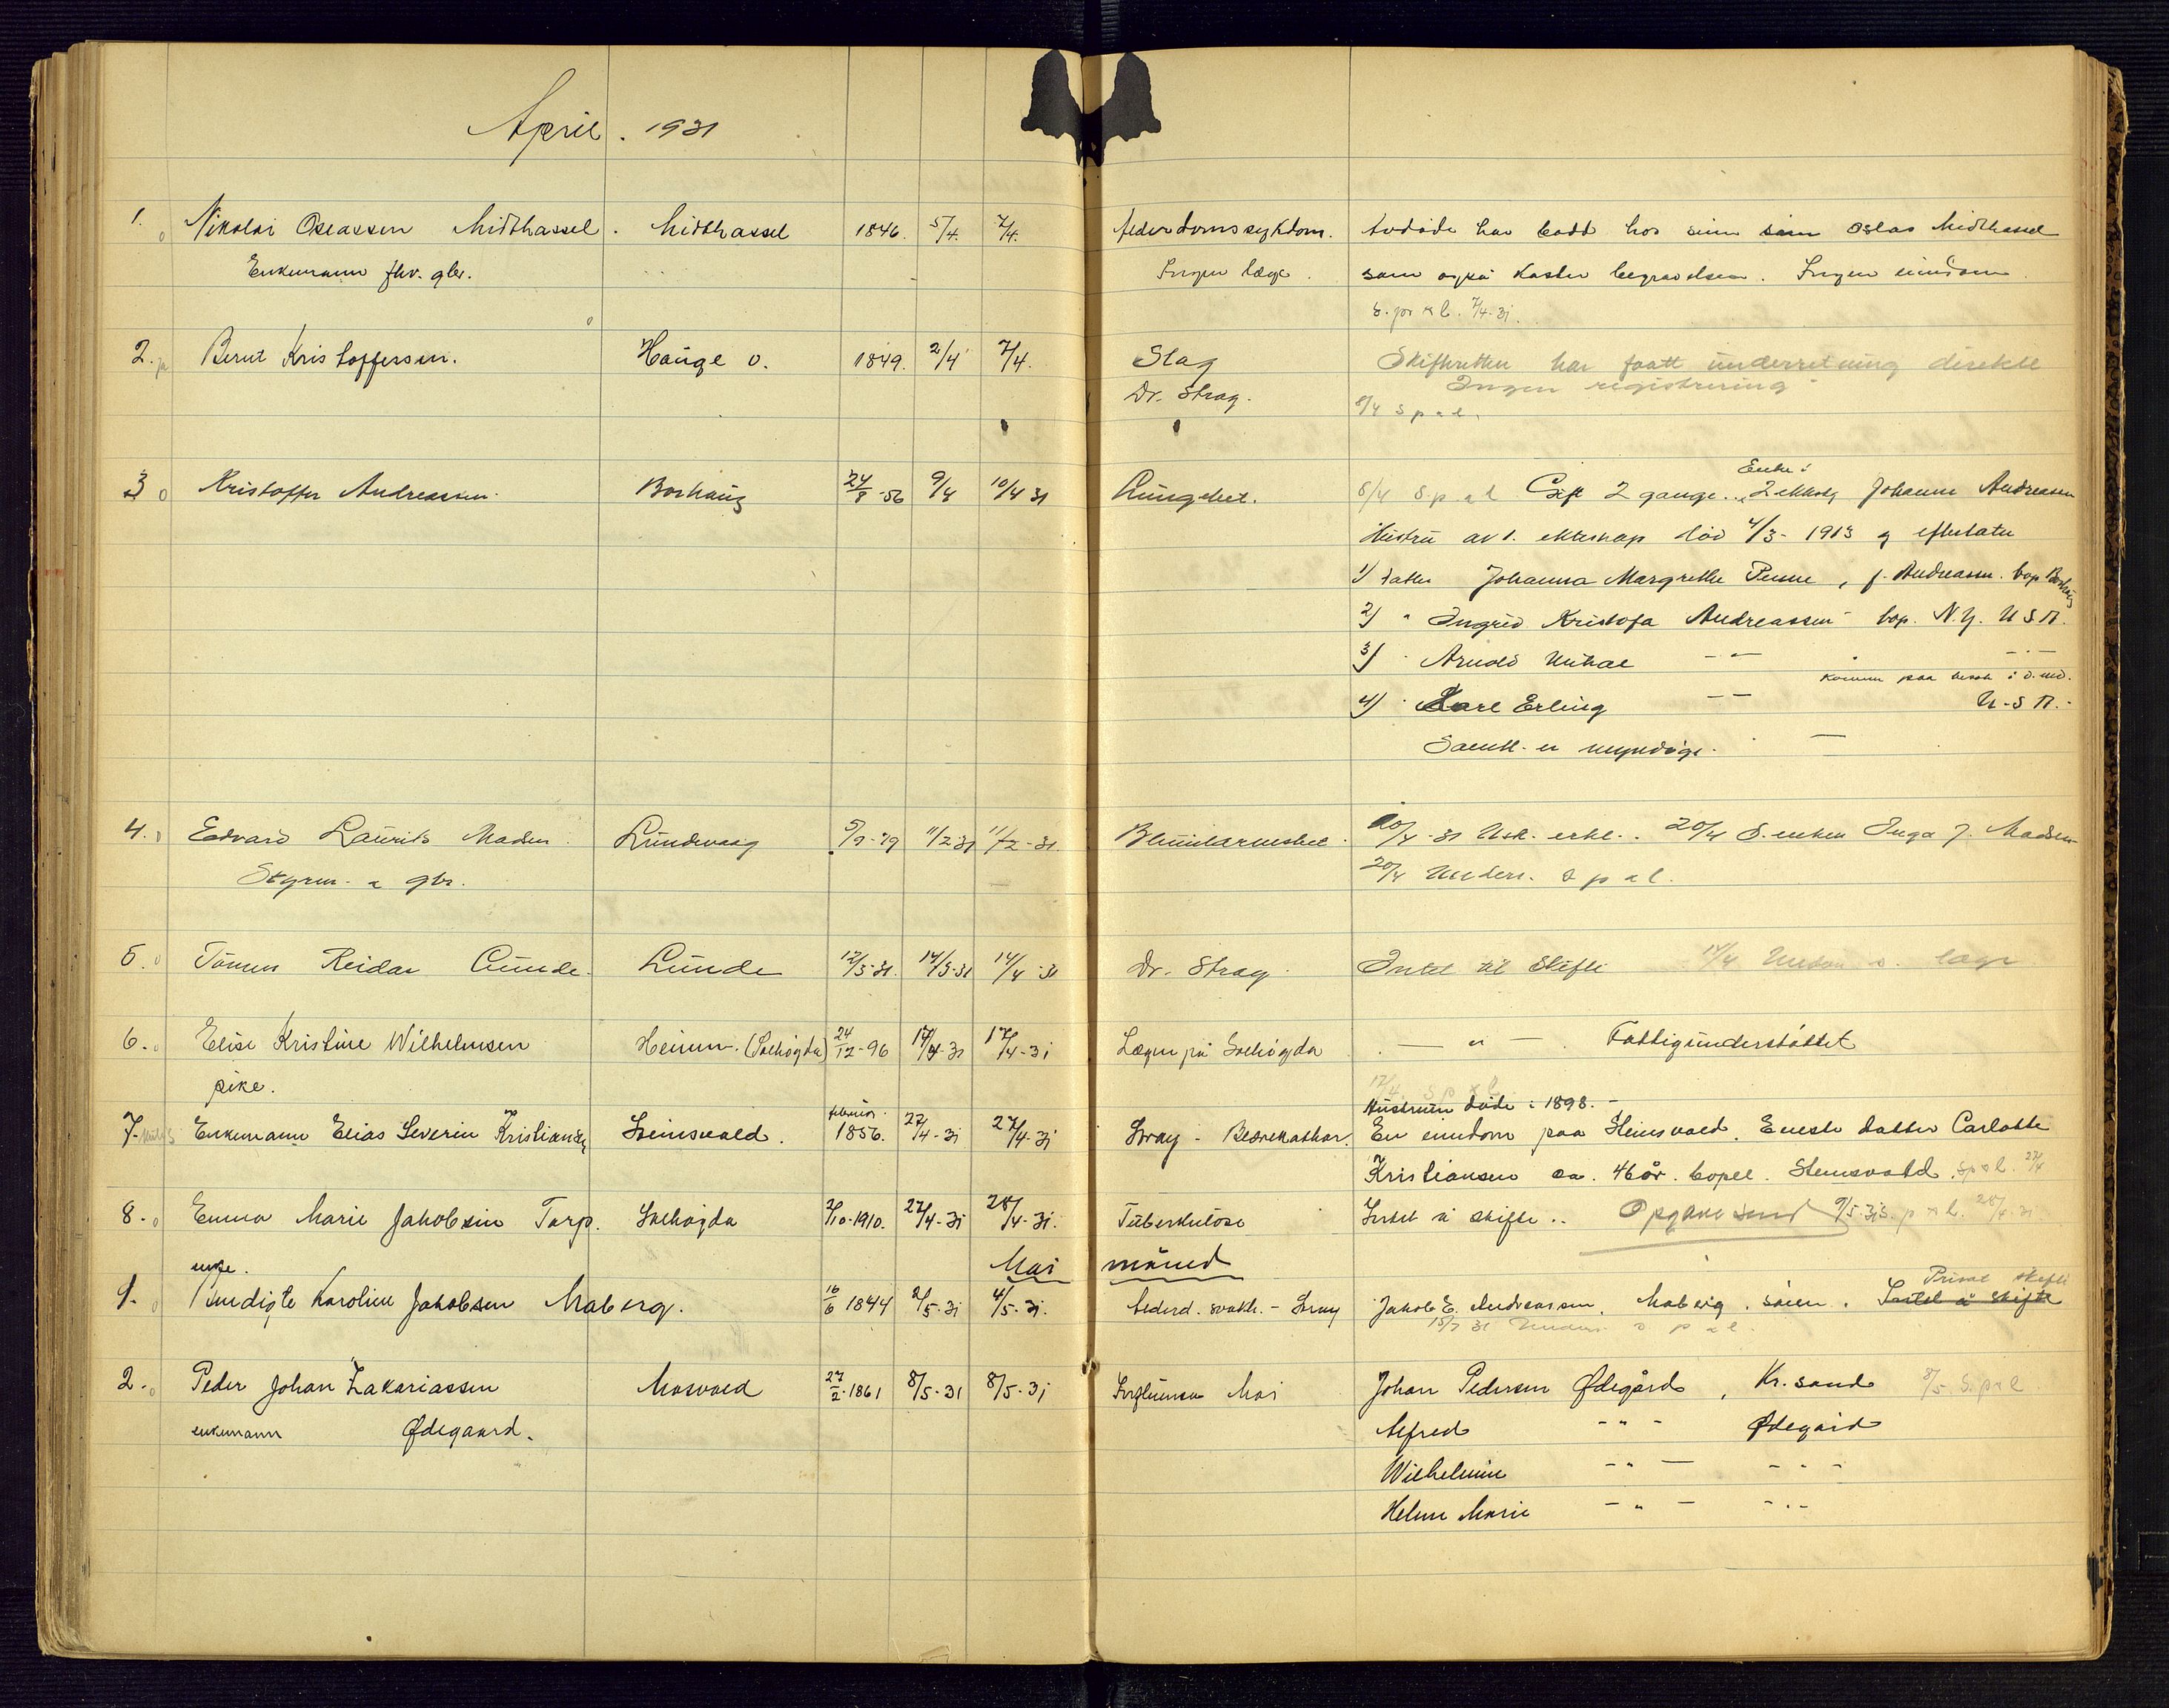 April. 1931
1. Nikolai Oseassen Midthassel. Midthassel 1846. 5/4. 7/4. Alderdomssykdom. Avdøde har bodd hos sin søn Oseas Midthassel
Enkemann fhv. gbr. Ingen læge. som også koster begravelsen. Ingen eiendom
S. p. & l. 7/4-31.
2. ja Bernt Kristoffersen. Hauge v. 1849. 2/4 7/4. Slag Skifteretten har faatt underretning direkte
Dr. Stray. Ingen registrering
8/4 s p a l.
3 Kristoffer Andreassen. Borhaug 24/8-56 9/4 10/4 31 Lungebet. 8/4 S. p a l Gift 2 gange. Enke: 2 ektesk. Johanne Andreassen
Hustru av 1. ekteskap død 4/3-1913 og efterlater
1) datter Johanna Margrethe Penne, f. Andreassen. bop. Borhaug
2) " Ingrid Kristofa Andreassen bop. N.Y. U S A.
3) Arnold Mikal - " - - " -
Kommer paa besøk i d. md.
4) Karl Erling - " - U.S.A.
Samtl. er myndige.
4. Edvard Laurits Madsen. Lundevaag 5/9-79 11/2 31 11/2-31. Blindtarmsbet. 20/4-31 Usk. erkl. 20/4 S. enken Inga J. Madsen
Styrm. & gbr. 20/4 Unders. s p a l.
5. Tønnes Reidar Lunde. Lunde 12/3-31. 14/3-31 14/4-31 Dr. Stray. Intet til Skifte 14/4
6. Elise Kristine Wilhelmsen Heimm. (Solhøgda) 24/12-96 17/4-31 17/4-31 Lægen på Solhøgda - " - . Fattigunderstøttet
pike. 17/4 s p & l
7. Enkemann Elias Severin Kristiansen Steinsvold. februar. 1856. 27/4-31 27/4-31 Stray - Blærekatharr. Hustruen døde i 1898. -
En eiendom paa Steinsvold. Eneste datter Carlotte
Kristiansen ca. 46 år. bopel. Steinsvold. s p & l. 27/4
8. Emma Marie Jakobsen Torp. Solhøgda 2/10-1910. 27/4-31 28/4-31. Tuberkulose Intet å skifte.. Opgave send 9/5-31 s. p & l. 28/4-31
ugift.
Mai måned
1. Benedigte Karoline Jakobsen Maberg. 16/6 1844 2/5-31 4/5-31. Alderd. svakh. - Stray Jakob E. Andreassen. Maberg. sønn. Intet å skifte Privat skifte
15/7 31 Unders. s p a l.
2. Peder Johan Zakariassen Mosvold 27/2-1861 8/5-31 8/5-31 Influensa Moi Johan Pedersen Ødegård, Kr.sand 8/5 S. p a l
enkemann Ødegaard. Alfred - " - Ødegård
Wilhelmine - " - - " -
Helene Marie - " - - " -